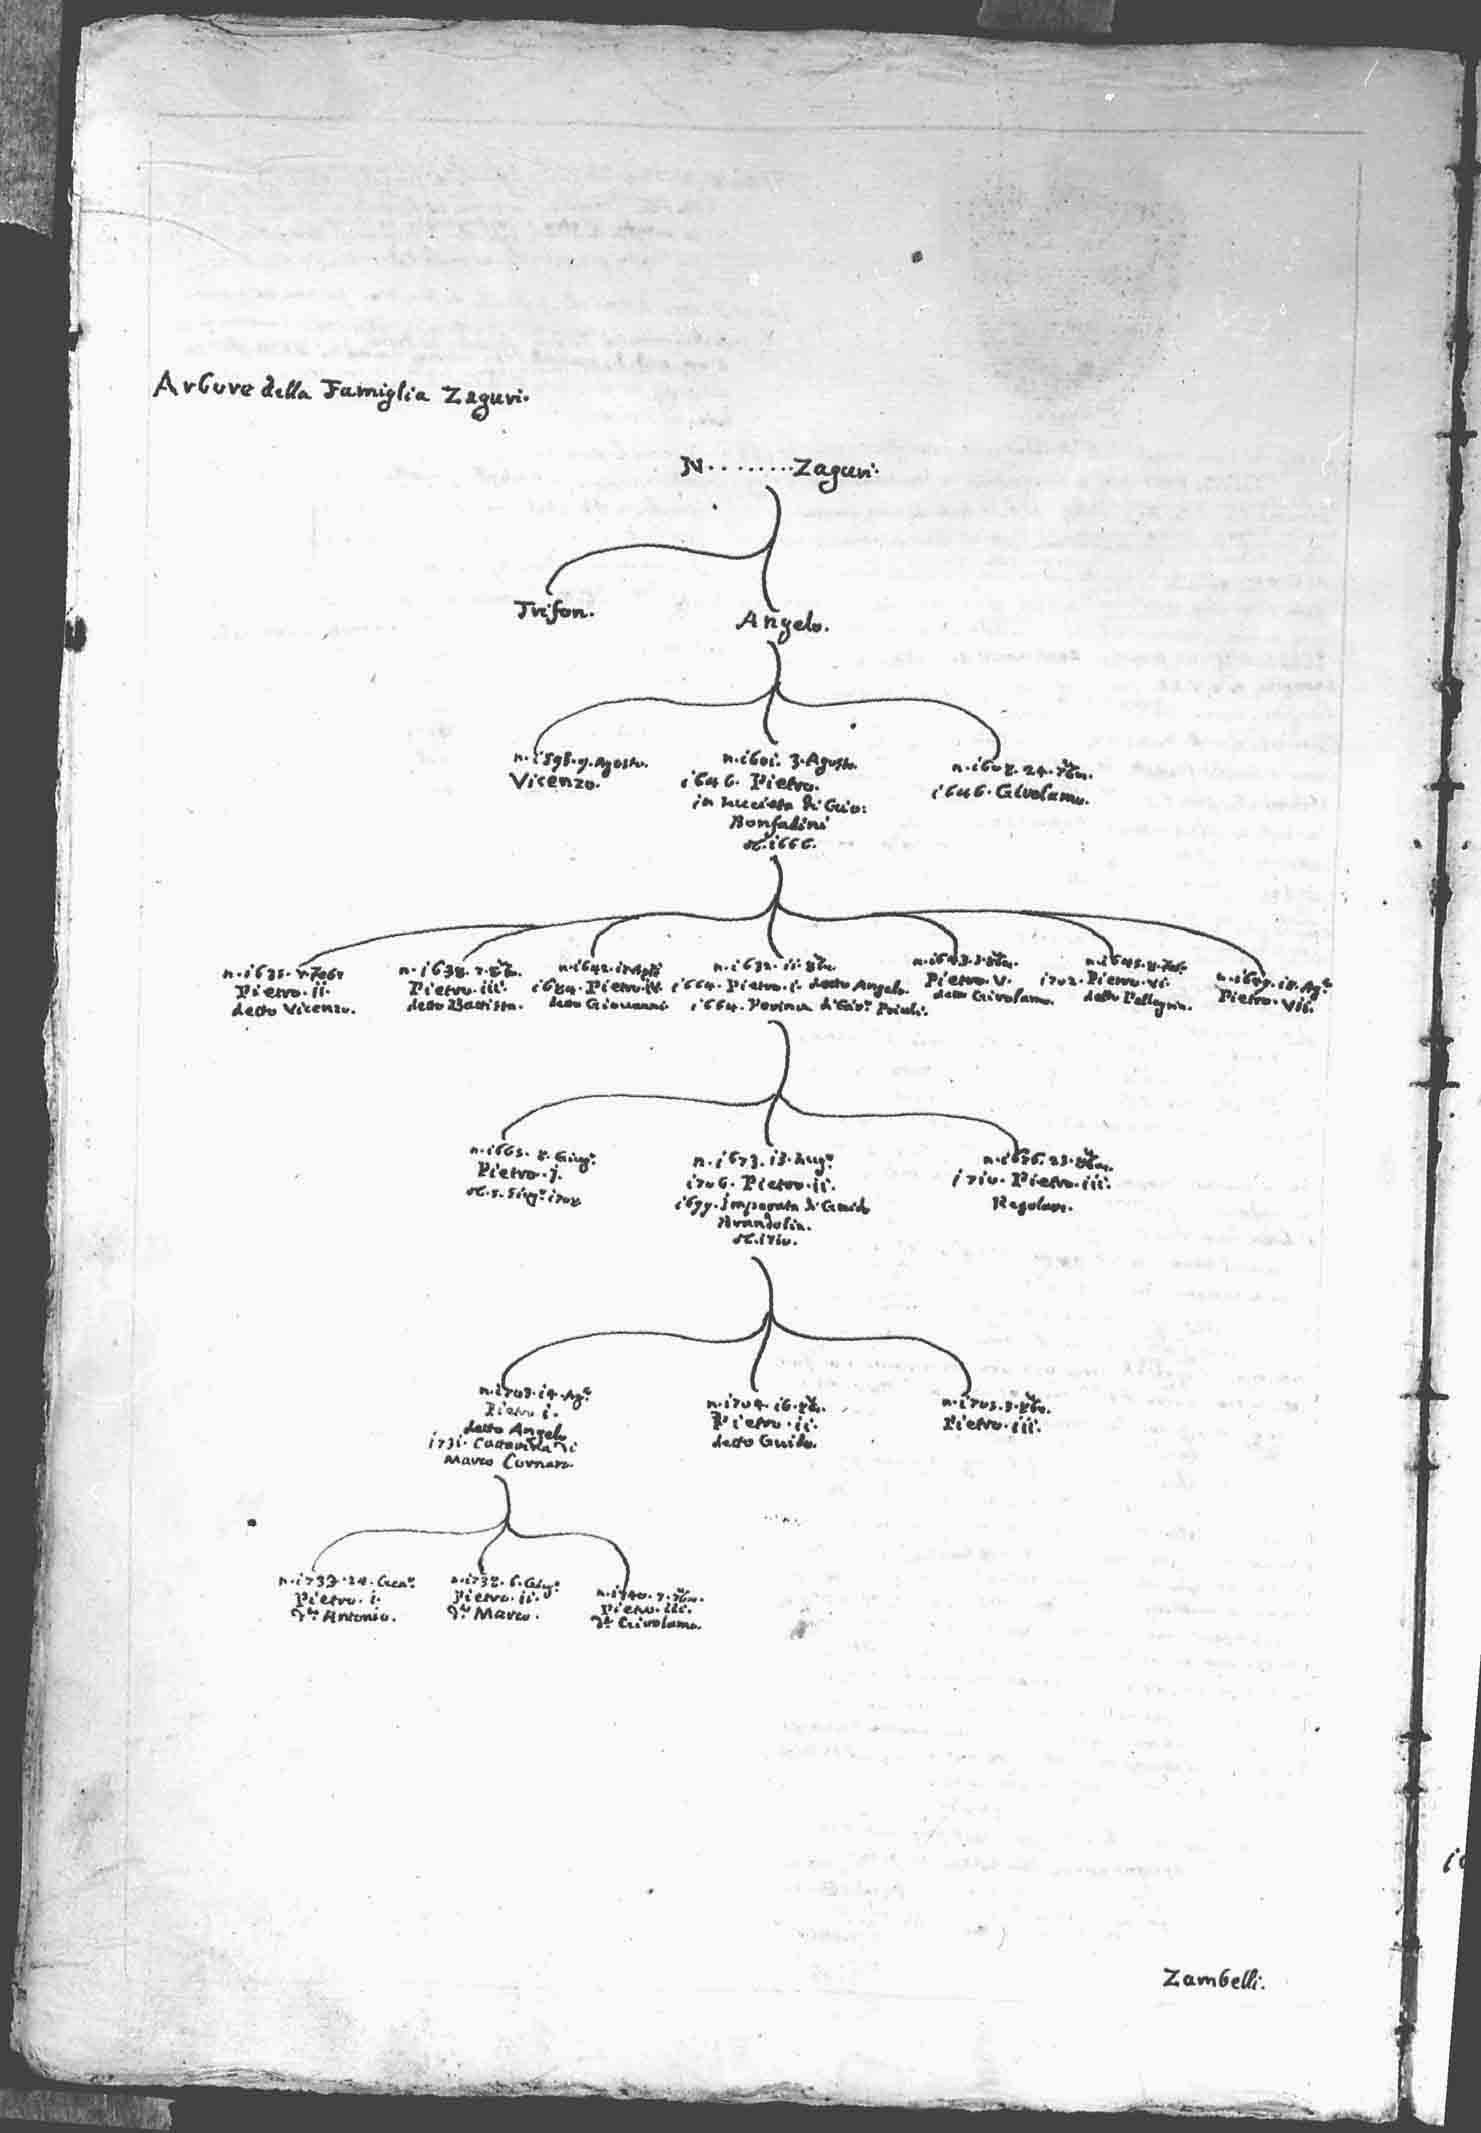 Arbore della Famiglia Zaguri.
N........Zaguri.
Trifon.
Angelo.
n. 1598. 9. Agosto.
Vicenzo.
n. 1601. 3. Agosto.
1646. Pietro.
in di Gio:
Bonfadini
1666.
n. 1608. 24. 7bre.
1646. Girolamo.
n. 1635.
Pietro. ii.
detto Vicenzo.
n. 1638. 7.
Pietro. iii.
detto Battista.
n. 1642.
1684. Pietro. iv.
detto Giovanni
n. 1632. 11. 8bre.
1664. Pietro. i. detto Angelo.
1664. di Priuli.
n. 1643. 3. 8bre.
Pietro. V.
detto Girolamo.
n. 1645. 8.
1702. Pietro. vi.
detto Pellegrin.
n. 1649. 18. Agº
Pietro. Vii.
n. 1665. 8. Giugº
Pietro. i.
5. Giugº 1708
n. 1673. 13.
1706. Pietro. ii.
1699. Imperata di Guido
Avandolin.
1710.
n. 1676. 23. 8bre.
1710. Pietro. iii.
Regolare.
n. 1703. 14. Agº
Pietro i.
detto Angelo
1731. Catterina di
Marco Cornaro.
n. 1704. 16. 8bre.
Pietro. ii.
detto Guido.
n. 1705. 8bre.
Pietro. iii.
n. 1733. 24. Genº
Pietro. i.
dto Antonio.
n. 1738. 6. Giugº
Pietro. ii.
dto Marco.
n. 1740. 7. 7bre.
Pietro. iii.
dto Girolamo.
Zambelli.